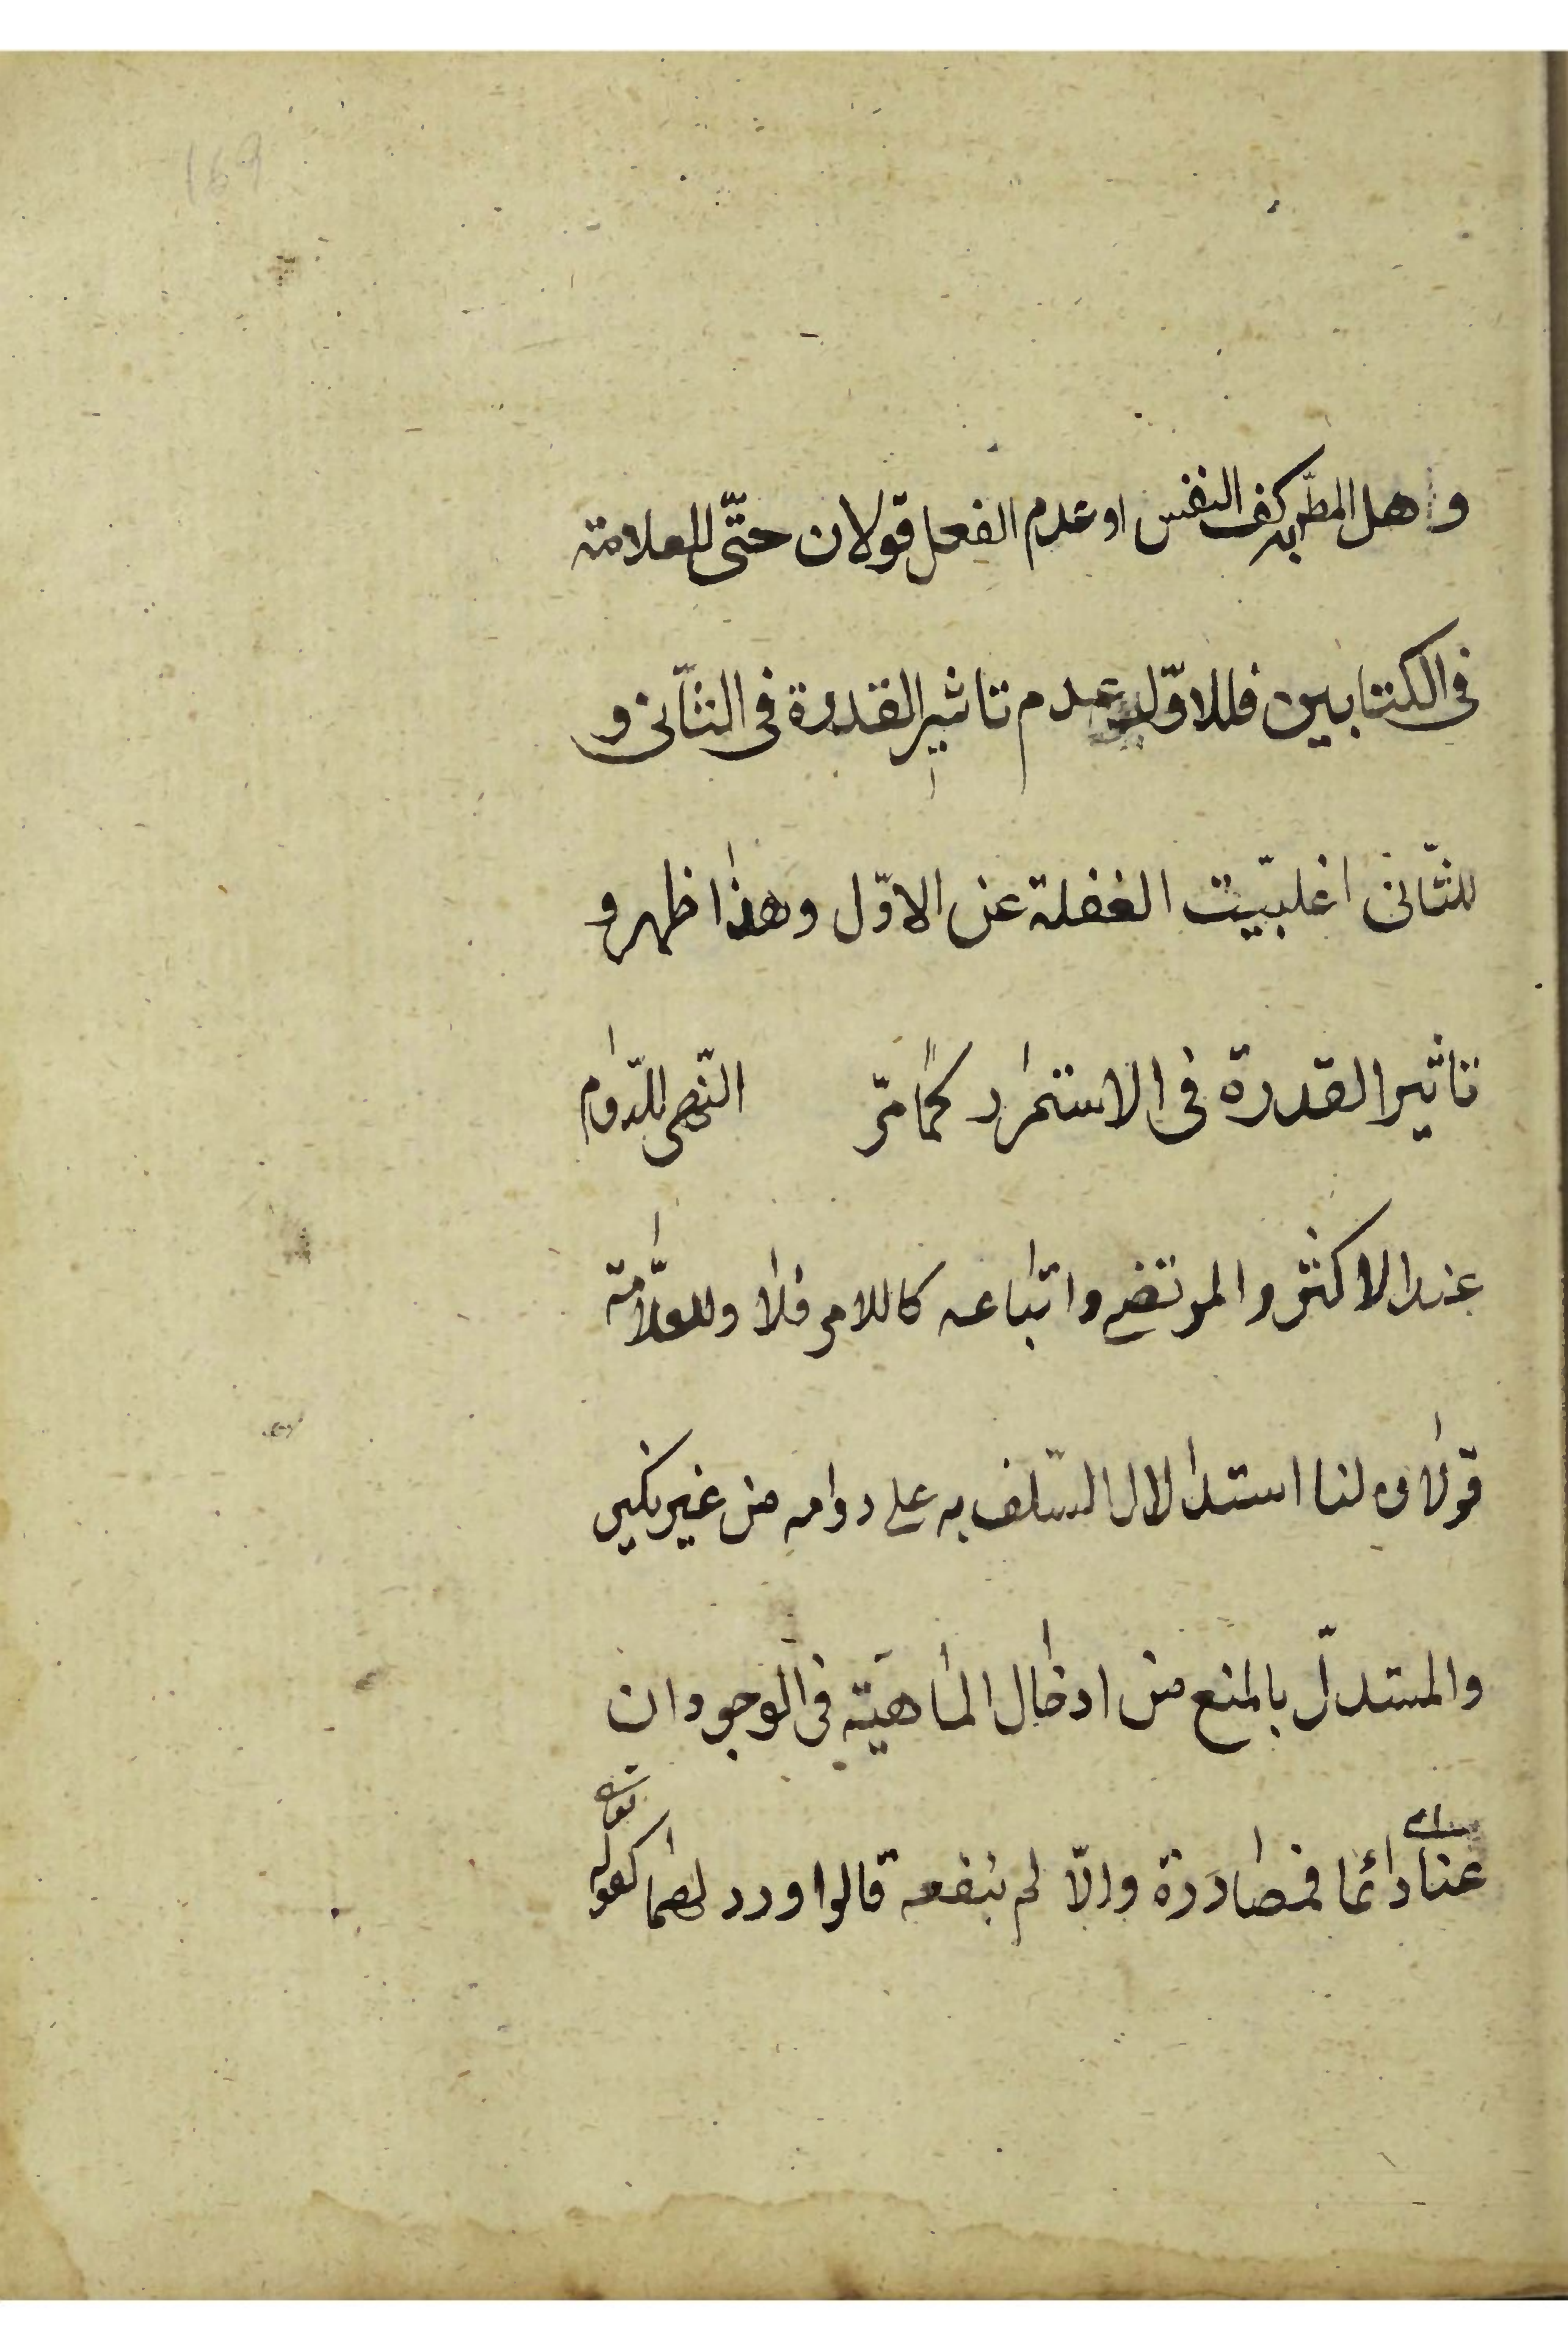 169
وهل المطر به كف النفس او عدم الفعل قولان حتّى للعلامة
فى الكتابين فللاوّل عدم تاثير القدرة فى الثّانى و
للثّانى اغلبيّت الغفلة عن الاوّل وهذا ظهر و
تاثير القدرة فى الاستمرار كما مرّ النّهى للدّوام
عند الاكثر والمرتضى واتباعه كاللامر فلا وللعلّامة
قولان لنا استدلالال السّلف به على دوامه من غير نكير
والمستدلّ بالمنع من ادخال الماهيّة فى الوجود ان
عنا دائما فمصادرة والّا لم ينفعه قالوا ورد لهما كقوله